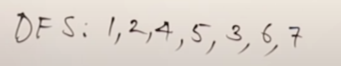 DFS: 1,2,4,5,3,6,7